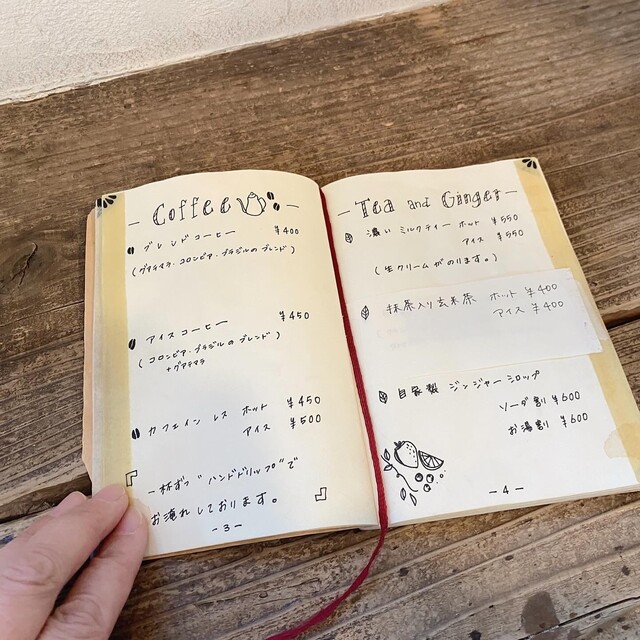 Coffee
ブレンドコーヒー ¥400
(グアテマラ・コロンビア・ブラジルのブレンド)
アイスコーヒー ¥450
(コロンビア・ブラジルのブレンド)
+グアテマラ
カフェインレス ホット ¥450
アイス ¥500
一杯ずつ"ハンドドリップ"で
お淹れしております。
-3-
Tea and Ginger
濃いミルクティー ホット ¥550
アイス ¥550
(生クリームがのります。)
抹茶入り玄米茶 ホット ¥400
アイス ¥400
自家製 ジンジャーシロップ
ソーダ割 ¥600
お湯割 ¥600
-4-